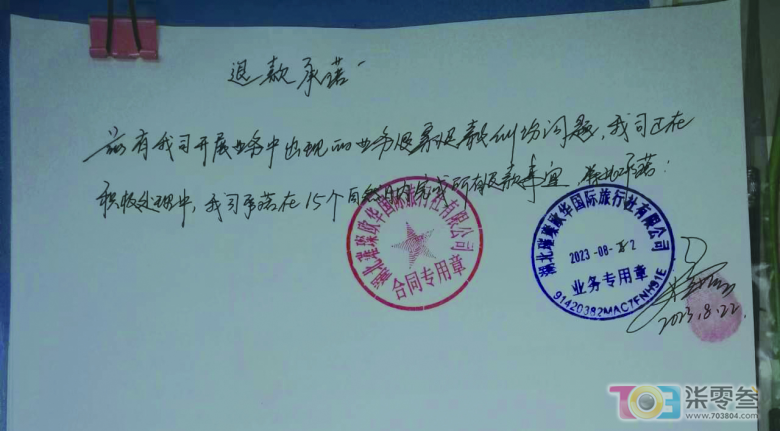 退款承诺
兹有我司开展业务中出现的业务退款纠纷问题，我司正在
积极处理中，我司承诺在15个自然日内完成所有退款事宜，特此承诺：
湖北璀璨欧华国际旅行社有限公司
合同专用章
湖北璀璨欧华国际旅行社有限公司
2023-08-22
业务专用章
91420382MAC7FNH91E
2023.8.22.
703 柒零叁
www.703804.com